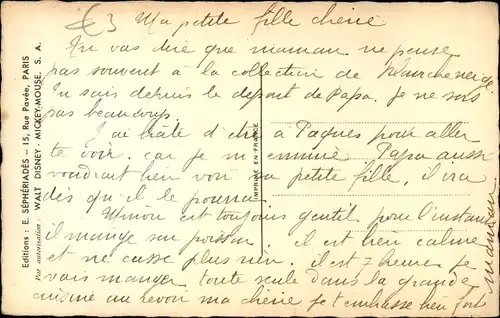 €3
Ma petite fille chérie
Tu vas dire que maman ne pense
pas souvent à la collection de Blanche neige
Tu sais depuis le depart de Papa. Je ne sors
pas beaucoup.
J'ai hâte d'être à Paques pour aller
te voir. car je m'ennuie Papa aussi
voudrait bien voir sa petite fille, il ira
dès qu'il le pourra.
Minou est toujours gentil pour l'instant
il mange son poisson. il est bien calme
et ne casse plus rien. il est 7 heures je
vais manger toute seule dans la grande
cuisine au revoir ma chérie je t'embrasse bien fort
maman
IMPRIMÉ EN FRANCE
Editions : E. SÉPHÉRIADÈS - 15, Rue Pavée, PARIS
Par autorisation : WALT DISNEY - MICKEY-MOUSE, S. A.